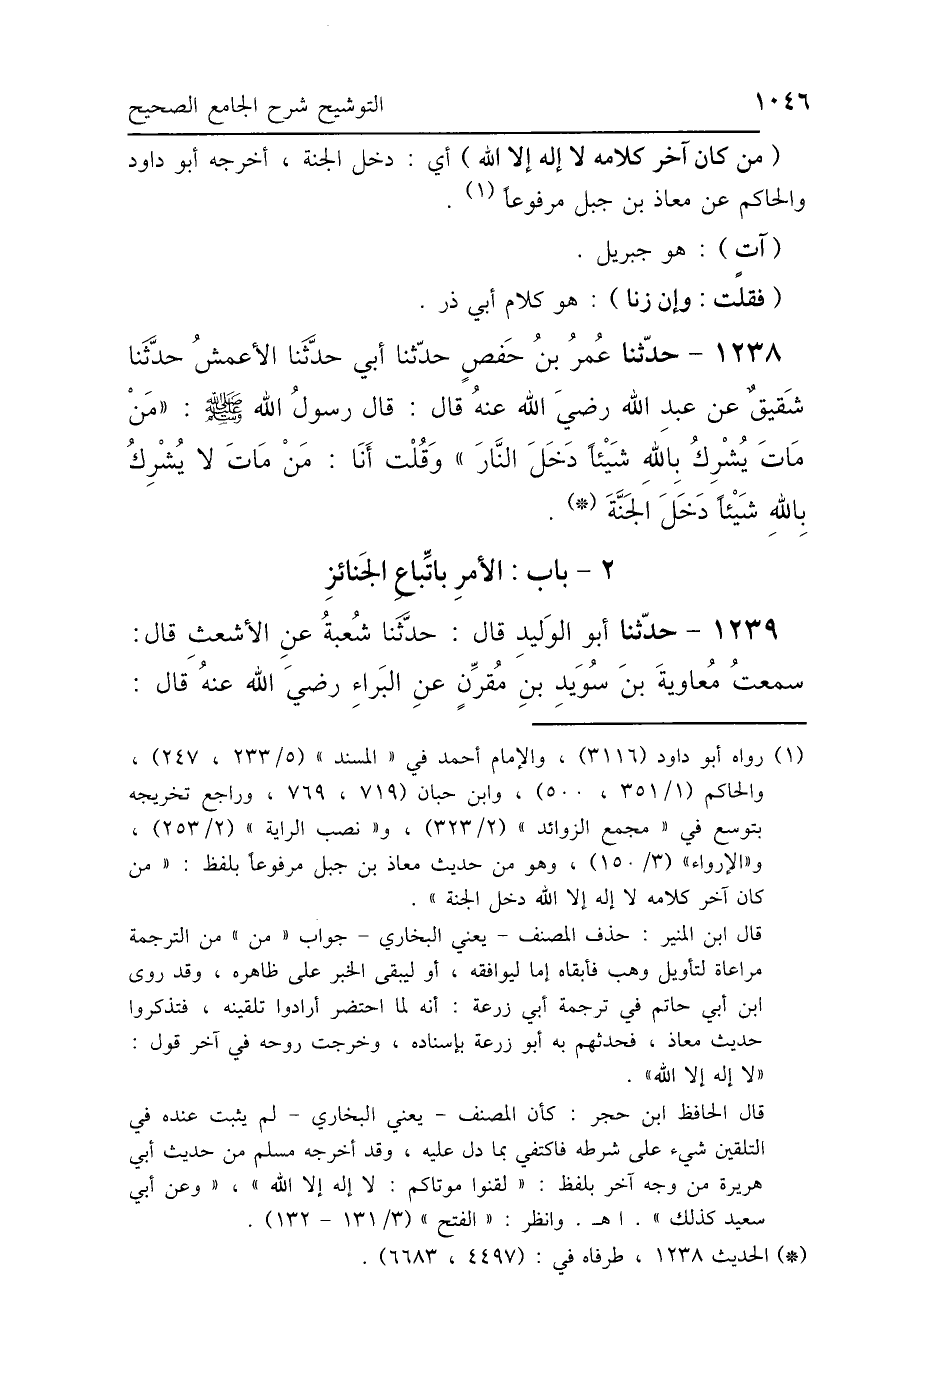 ١٠٤٦ التوشيح شرح الجامع الصحيح
( من كان آخر كلامه لا إله إلا الله ) أي : دخل الجنة ، أخرجه أبو داود
والحاكم عن معاذ بن جبل مرفوعاً (١) .
( آتٍ ) : هو جبريل .
( فقلت : وإن زنا ) : هو كلام أبي ذر .
١٢٣٨ - حدّثنا عُمرُ بنُ حَفصٍ حدّثنا أبي حدَّثَنا الأعمشُ حدَّثَنا
شَقيقٌ عن عبدِ الله رضيَ الله عنهُ قال : قال رسولُ الله ﷺ : «مَنْ
مَاتَ يُشْرِكُ بِاللهِ شَيْئاً دَخَلَ النَّارَ » وَقُلْت أَنَا : مَنْ مَاتَ لا يُشْرِكُ
بِاللهِ شَيْئاً دَخَلَ الجَنَّةَ (*) .
٢ - باب : الأمرِ باتِّباعِ الجَنائزِ
١٢٣٩ - حدّثنا أبو الوَليدِ قال : حدَّثَنا شُعبةُ عنِ الأشعثِ قال:
سمعتُ مُعاويةَ بنَ سُوَيدِ بنِ مُقرِّنٍ عنِ البَراءِ رضيَ الله عنهُ قال :
(١) رواه أبو داود (٣١١٦) ، والإمام أحمد في « المسند » (٢٣٣/٥ ، ٢٤٧) ،
والحاكم (٣٥١/١ ، ٥٠٠) ، وابن حبان (٧١٩ ، ٧٦٩ ، وراجع تخريجه
بتوسع في « مجمع الزوائد » (٣٢٣/٢) ، و« نصب الراية » (٢٥٣/٢) ،
و«الإرواء» (١٥٠/٣) ، وهو من حديث معاذ بن جبل مرفوعاً بلفظ : « من
كان آخر كلامه لا إله إلا الله دخل الجنة » .
قال ابن المنير : حذف المصنف - يعني البخاري - جواب « من » من الترجمة
مراعاة لتأويل وهب فأبقاه إما ليوافقه ، أو ليبقى الخبر على ظاهره ، وقد روى
ابن أبي حاتم في ترجمة أبي زرعة : أنه لما احتضر أرادوا تلقينه ، فتذكروا
حديث معاذ ، فحدثهم به أبو زرعة بإسناده ، وخرجت روحه في آخر قول :
«لا إله إلا الله» .
قال الحافظ ابن حجر : كأن المصنف - يعني البخاري - لم يثبت عنده في
التلقين شيء على شرطه فاكتفي بما دل عليه ، وقد أخرجه مسلم من حديث أبي
هريرة من وجه آخر بلفظ : « لقنوا موتاكم : لا إله إلا الله » ، « وعن أبي
سعيد كذلك » . ا هـ . وانظر : « الفتح » (١٣١/٣ - ١٣٢) .
(*) الحديث ١٢٣٨ ، طرفاه في : (٤٤٩٧ ، ٦٦٨٣) .